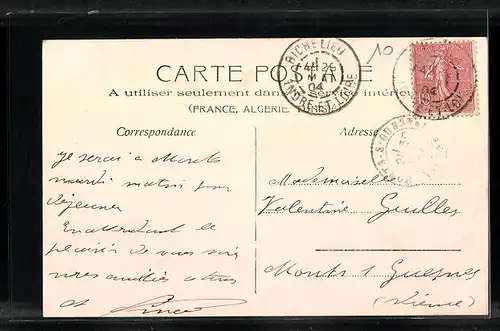 10
RICHELIEU
MAI
04
INDRE-ET-LOIRE
CARTE POSTALE
A utiliser seulement dans le service intérieur
(FRANCE, ALGERIE, TUNISIE)
Correspondance
Adresse
je serai à Monts
mardi matin pour
déjeuner
En attendant le
plaisir de vous voir
amitiés à tous
Mademoiselle
Valentine
Monts s Guesnes
(Vienne)